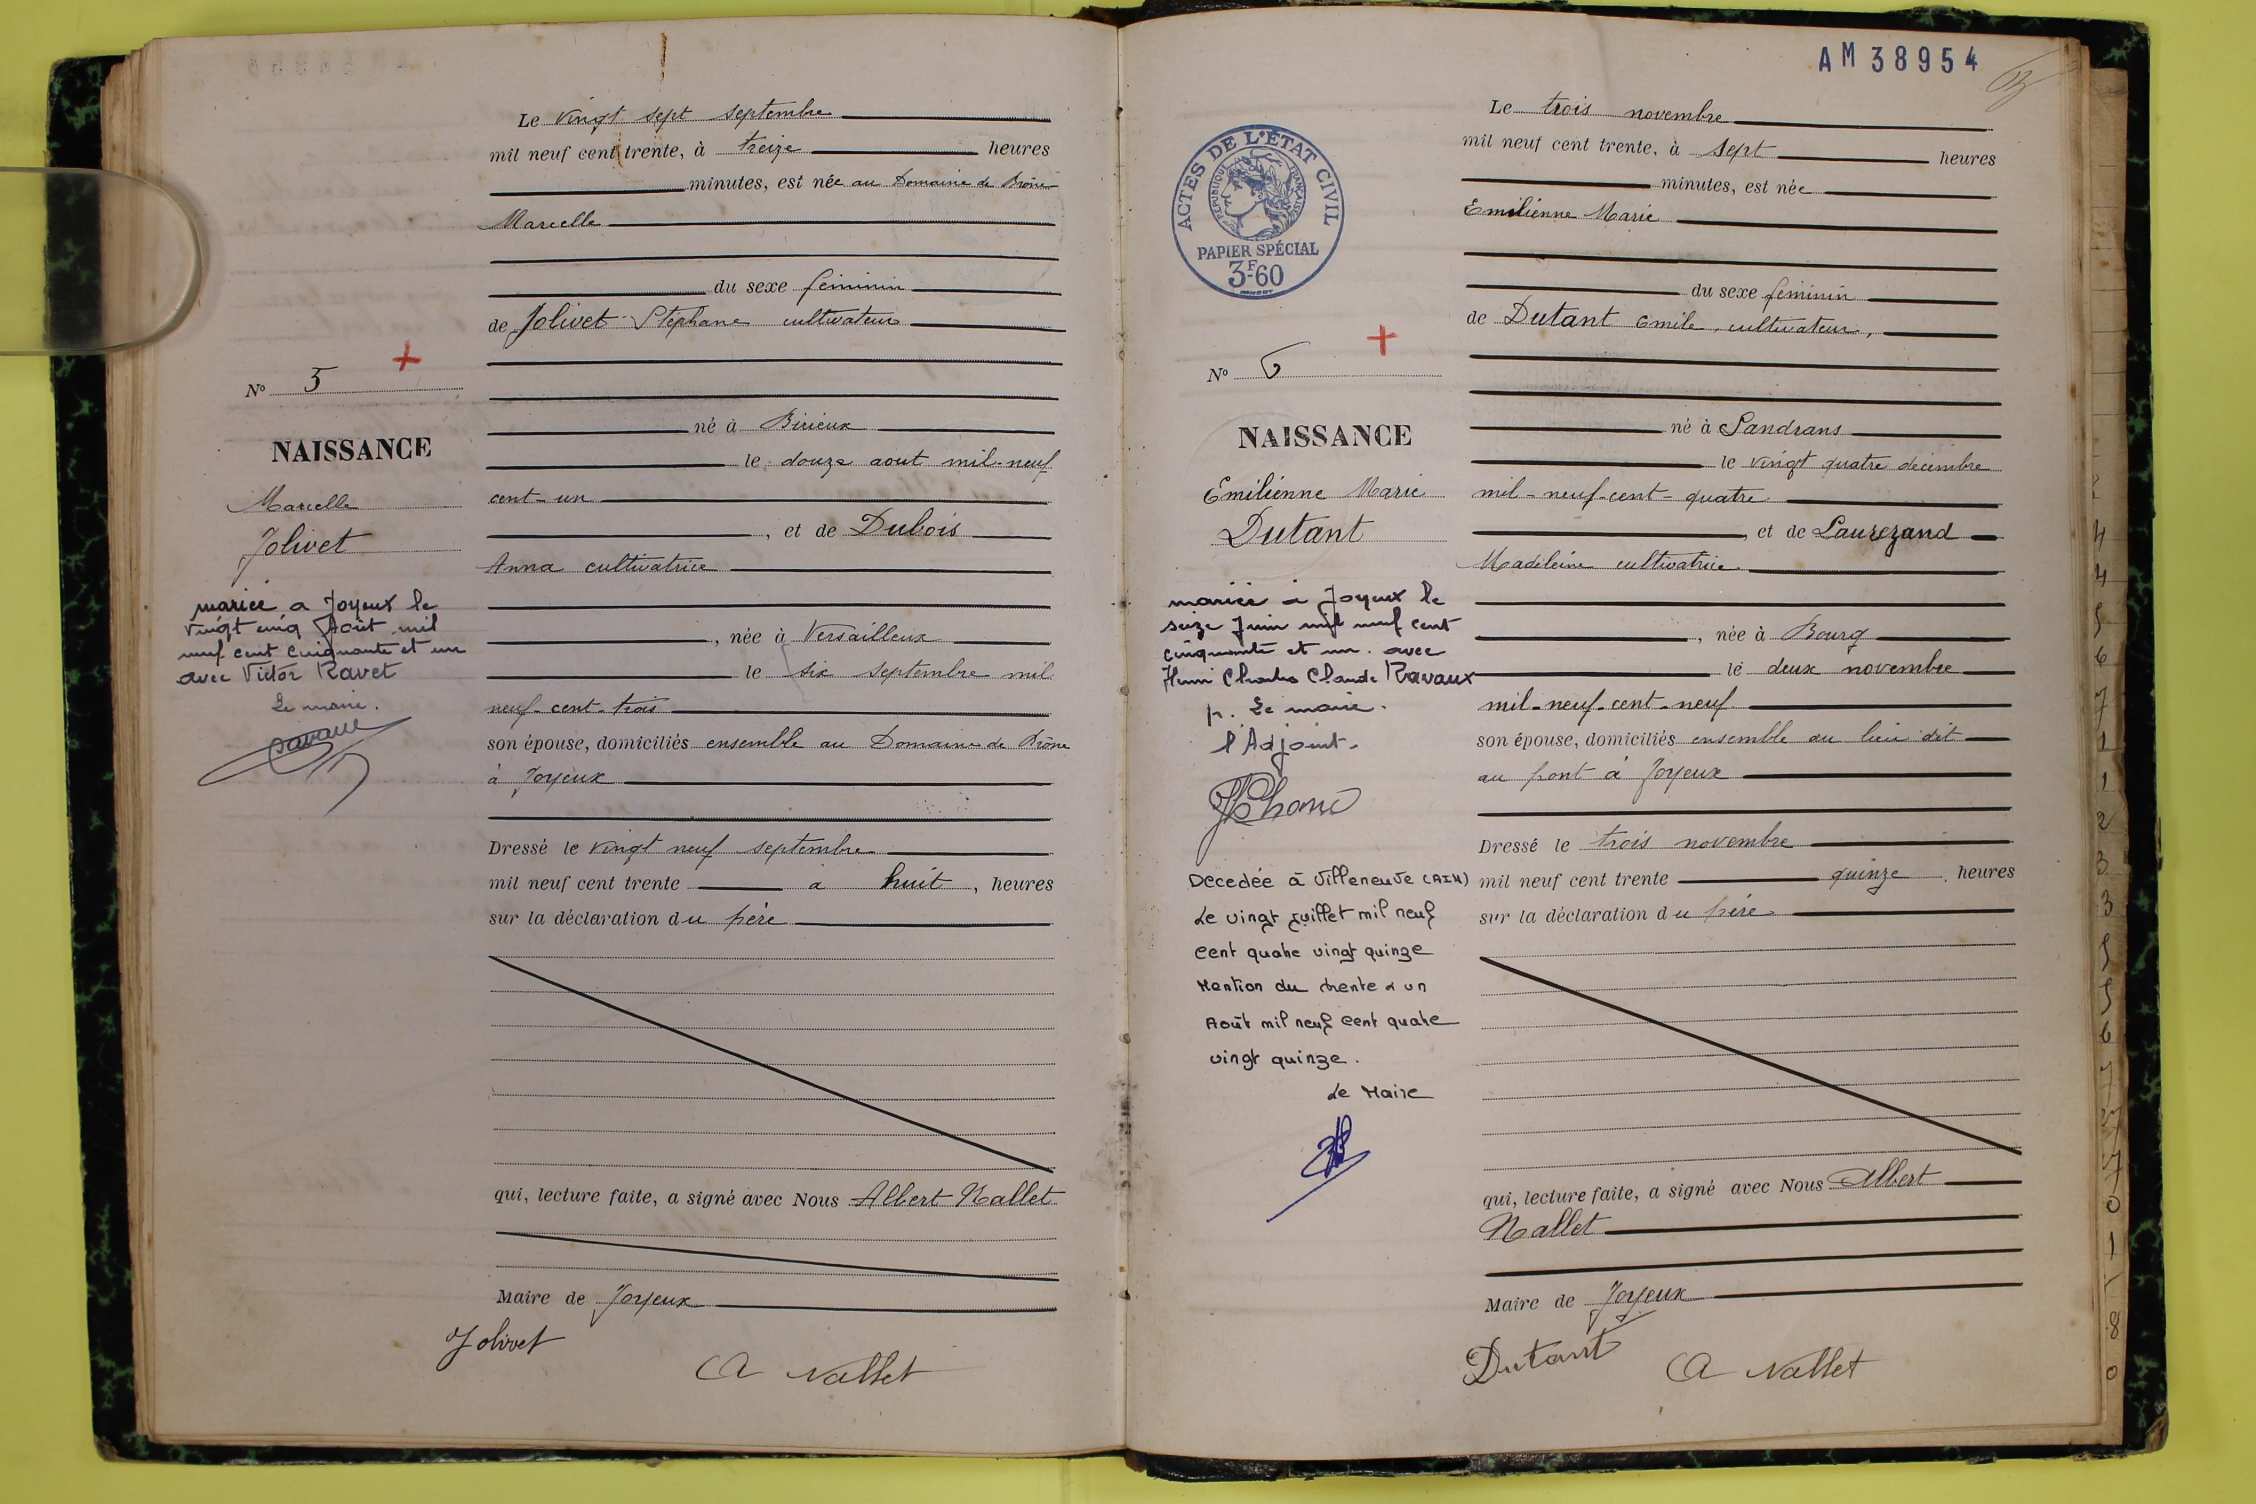 Le vingt sept septembre
mil neuf cent trente, à treize heures
minutes, est née au Domaine de Brône
Marcelle
du sexe féminin
de Jolivet Stéphane cultivateur
né à Birieux
le douze aout mil-neuf
cent-un
, et de Dubois
Anna cultivatrice
, née à Versailleux
le six septembre mil
neuf-cent-trois
son épouse, domiciliés ensemble au Domaine de Brône
à Joyeux
Dressé le vingt neuf septembre
mil neuf cent trente à huit, heures
sur la déclaration du père
qui, lecture faite, a signé avec Nous Albert Nallet
Maire de Joyeux
Jolivet
A Nallet
N° 5
NAISSANCE
Marcelle
Jolivet
mariée a Joyeux le
vingt cinq Août mil
neuf cent cinquante et un
avec Victor Ravet
Le maire.
AM 38954
ACTES DE L'ÉTAT CIVIL
RÉPUBLIQUE FRANÇAISE
PAPIER SPÉCIAL
3F-60
N° 6
NAISSANCE
Emilienne Marie
Dutant
mariée à Joyeux le
seize Juin mil neuf cent
cinquante et un. avec
Henri Charles Claude Ravaux
p. Le maire.
l'Adjoint.
Decedée à Villeneuve (AIN)
Le vingt juillet mil neuf
cent quatre vingt quinze
Mention du trente & un
Août mil neuf cent quatre
vingt quinze.
Le Maire
Le trois novembre
mil neuf cent trente, à sept heures
minutes, est née
Emilienne Marie
du sexe féminin
de Dutant Emile, cultivateur,
né à Sandrans
le vingt quatre décembre
mil-neuf-cent-quatre
, et de Laurezand
Madeleine cultivatrice
, née à Bourg
le deux novembre
mil-neuf-cent-neuf
son épouse, domiciliés ensemble au lieu dit
au pont à Joyeux
Dressé le trois novembre
mil neuf cent trente quinze, heures
sur la déclaration du père
qui, lecture faite, a signé avec Nous Albert
Nallet
Maire de Joyeux
Dutant
A Nallet